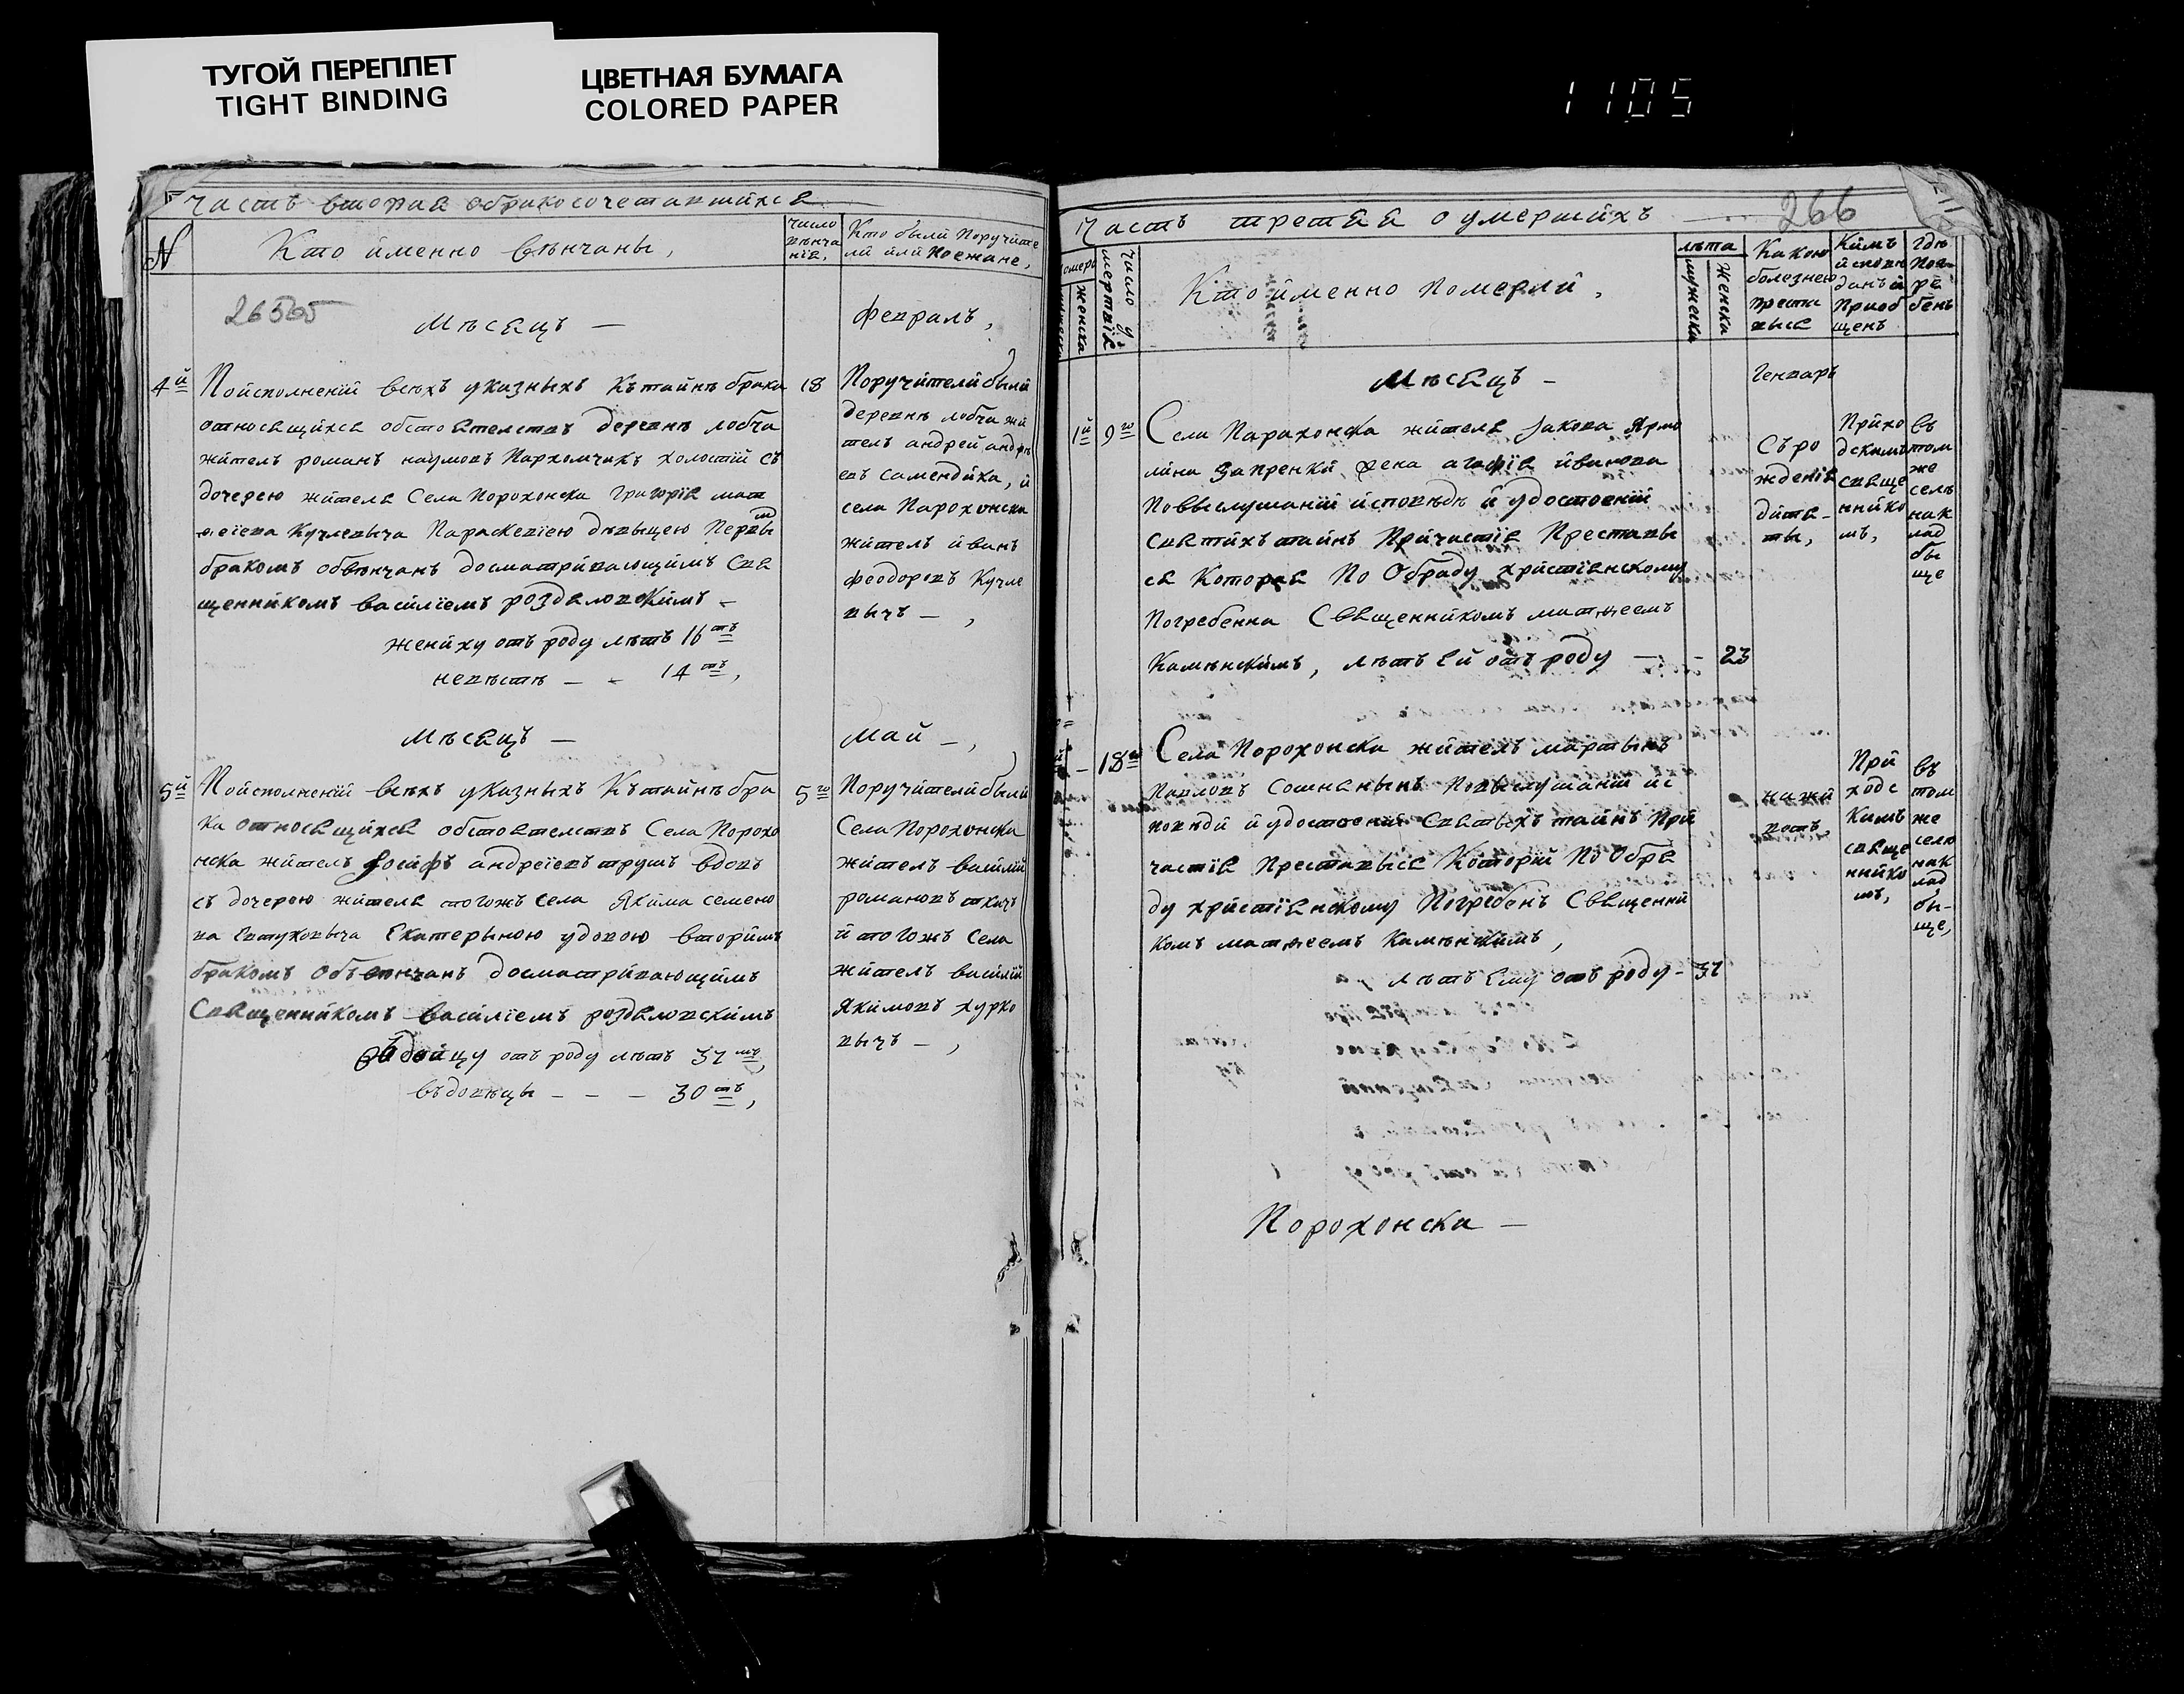 ТУГОЙ ПЕРЕПЛЕТ
TIGHT BINDING
ЦВЕТНАЯ БУМАГА
COLORED PAPER
1105
Часть вторая обракосочетавшихся
№
Кто именно венчаны,
число венча нія,
Кто были Поручите
ли или Поежане,
26565
Мѣсяцъ —
февраль,
4й
Поисполненіи всѣхъ указныхъ Къ тайнѣ брака
относящихся обстоятелствъ деревнѣ лобча
житель романъ наумовъ Пархомчикъ холостій съ
дочерею жителя Села Порохонска Григорія мат
ѳеіева Кучлевыча Параскевіею дѣвыцею Первы
м
бракомъ обвѣнчанъ досматривающимъ Свя
щенникомъ василіемъ роздяловскимъ —
жениху отъ роду лѣтъ 16ть
невѣстѣ — - 14ть,
18
Поручители были
деревнѣ лобча жи
тель андрей андрѣ
евъ Самендика, и
села Парохонска
житель иванъ
феодоровъ Кучле
вычъ — ,
Мѣсяцъ —
май —,
5й
Поисполненіи всѣхъ указныхъ Къ тайнѣ бра
ка относящихся обстоятелствъ Села Порохо
нска житель Іосифъ андреіевъ трушъ вдовъ
съ дочерею жителя тогожъ села Якима семено
ва Евтуховыча Екатерыною удовою вторимъ
бракомъ Объвѣнчанъ досматривающимъ
Священникомъ василіемъ роздяловскимъ
отъ роду лѣтъ 37мъ,
въдовѣцы — — — 30ть,
5го
Поручители были
Села Порохонска
житель василій
романовъ ткачъ
и тогожъ Села
житель василій
Якимовъ хурко
вычъ — ,
Часть третяя о умершихъ
266
номера
женска
число у
мертвія
Кто именно Померли,
лѣта
мужеска
женска
Какою
болезнею
преста
выся
Кимъ
исповѣ
данъ и
Приоб
щенъ
Гдѣ
Пог
ре
бенъ
Мѣсяцъ —
Генварь
1й
9го
Села Парахонска жителя Іакова Ярмо
лина Запренки жена агафія иванова
Поввыслушаніи исповѣдѣ и удостоеніи
Святихъ тайнъ Причастія Преставы
ся Которая По Обряду христіянскому
Погребенна Священникомъ матѳеемъ
Каменскимъ, лѣтъ Ей отъ роду — - 23
Съ ро
жденія
дитя-
ты,
Прихо
дскимъ
свяще
ннико
мъ,
въ
том
же
селѣ
нак
лад
бы
ще
18го
Села Порохонска житель мартынъ
Павловъ Повыслушаніи ис
повѣди и удостоеніи Святыхъ тайнъ При
частія Преставыся Которій По Обря
ду христіянскому Погребенъ Священни
комъ матѳеемъ Каменскимъ,
лѣтъ Ему отъ роду - 37
При
ходс
Кимъ
свяще
ннико
мъ,
въ
том
же
селѣ
нак
лад
бы-
ще,
Порохонска —